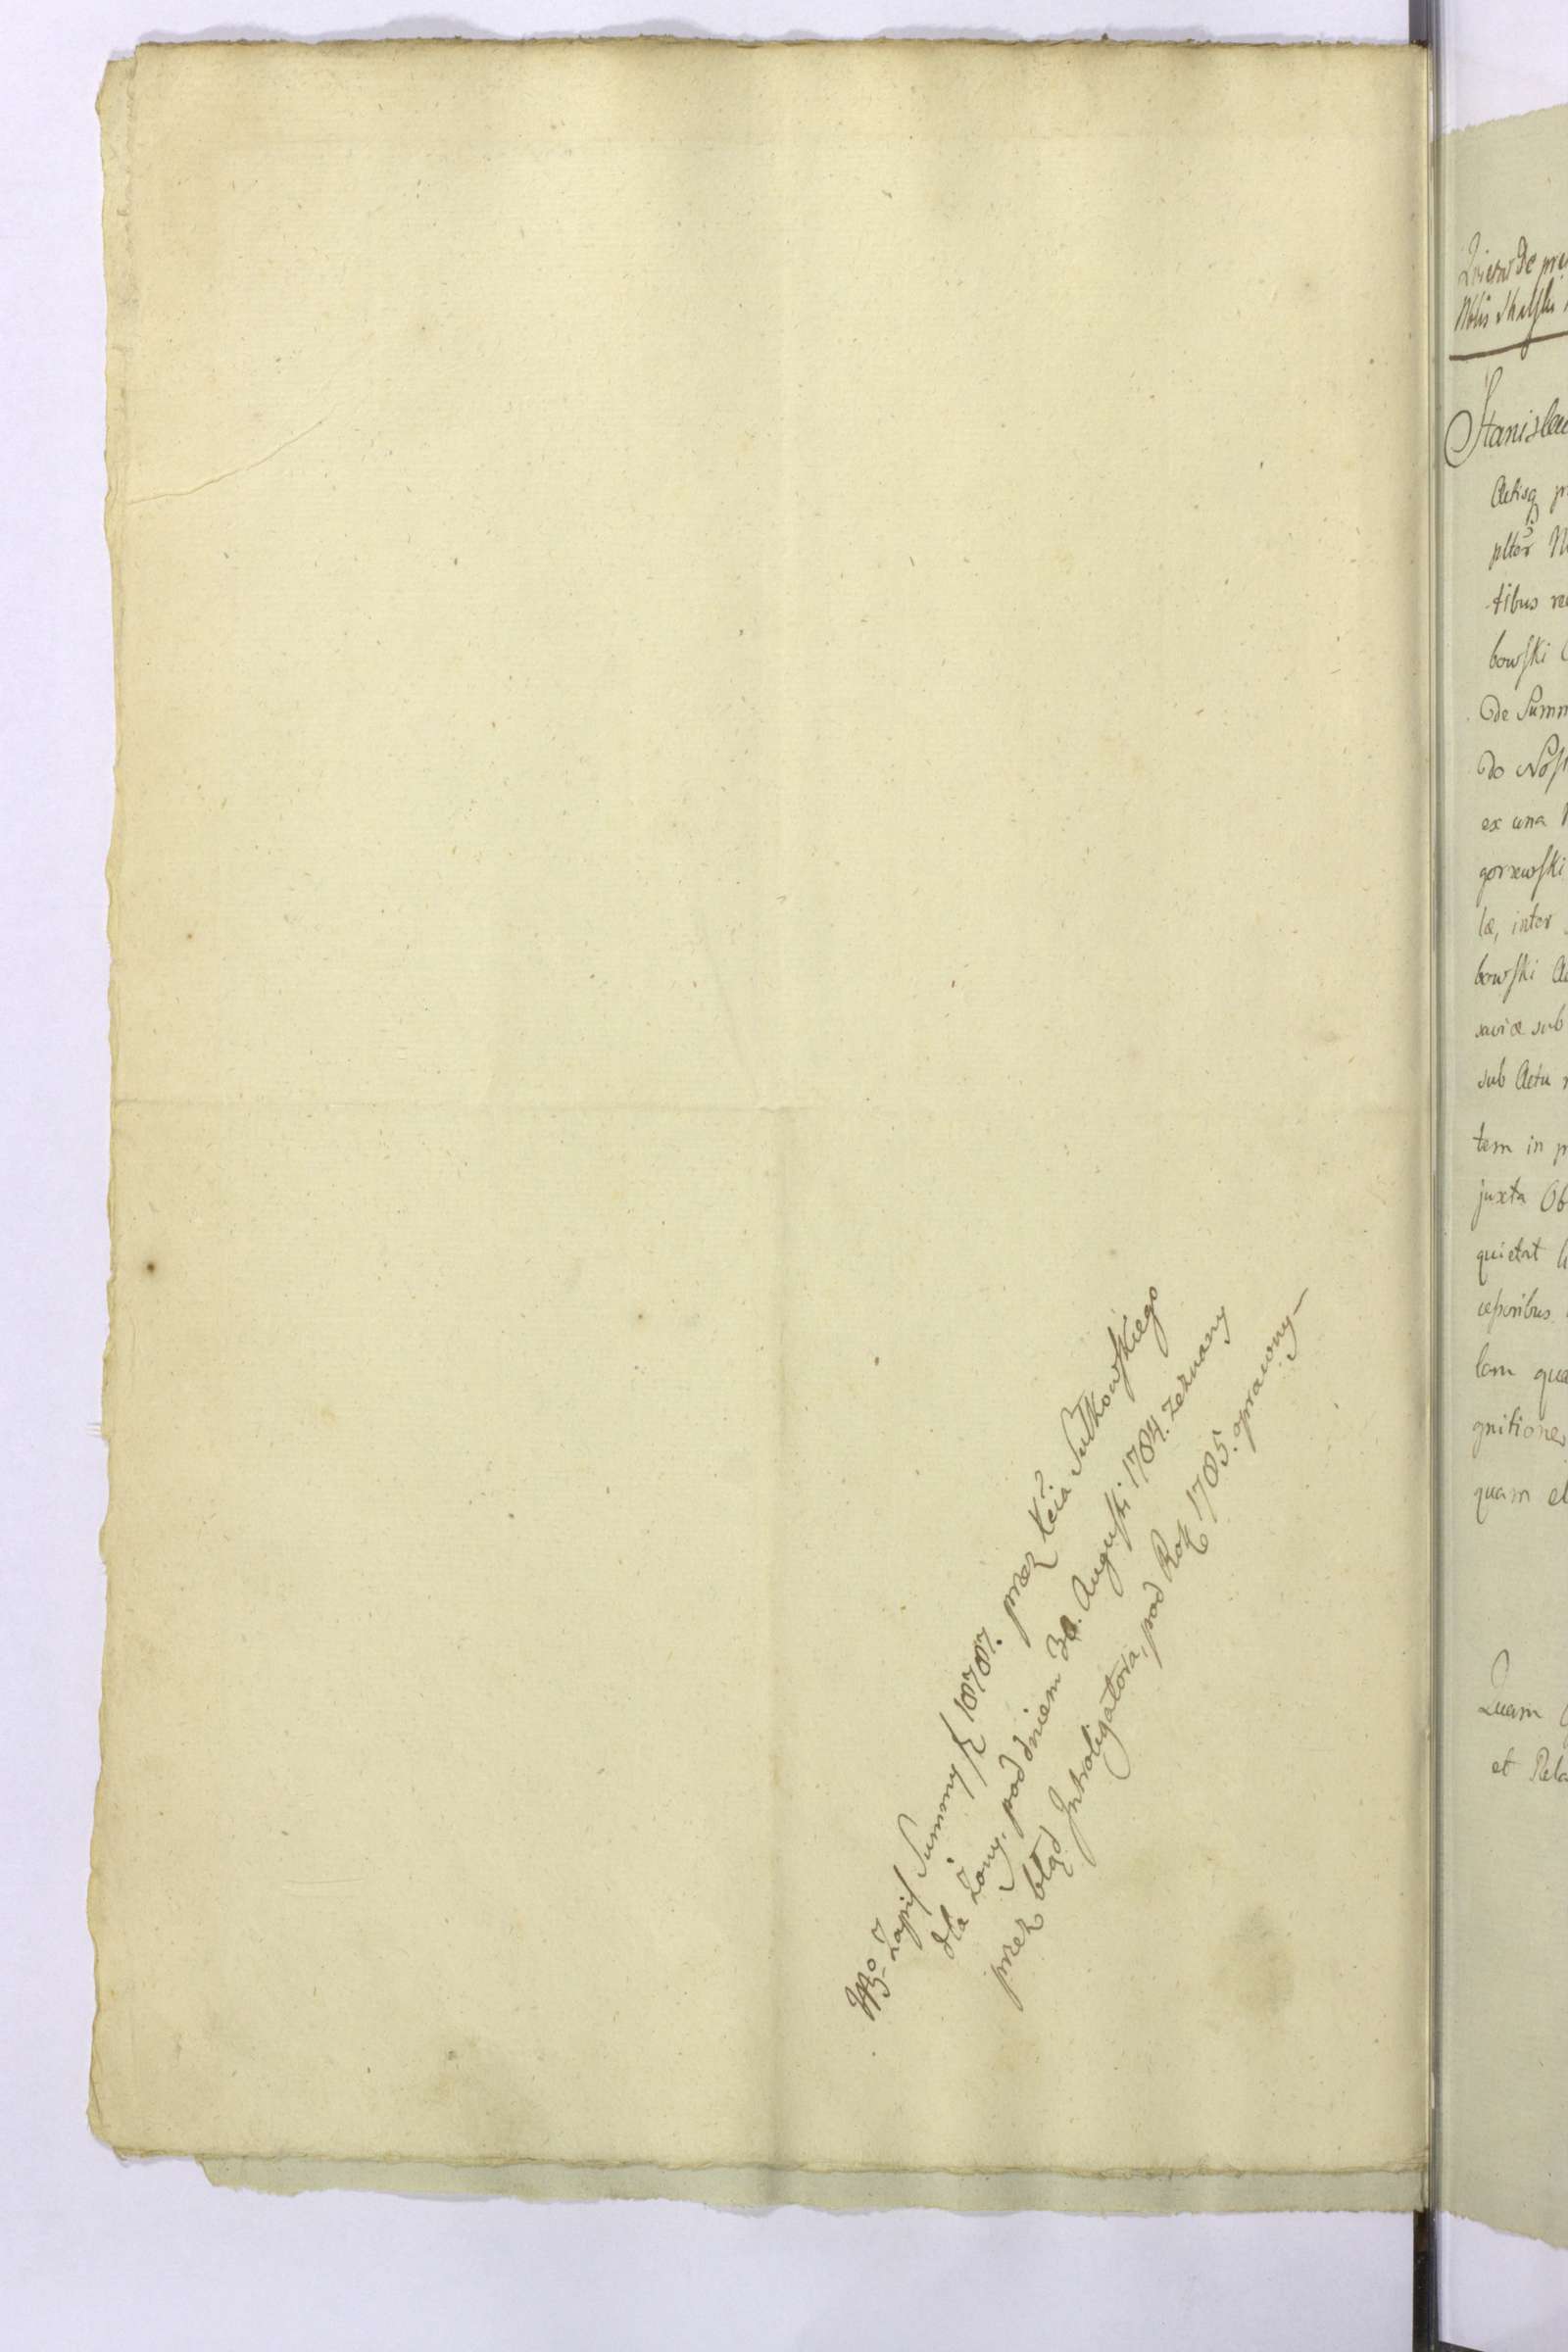 Zapis Summy fl 18787. przez Xcia Sułkowskiego
dla Zony, pod dniem 30. Augusti 1784. zeznany
przez błąd Introligatora, pod Rok 1785. oprawiony—
Nobis Skalski
Stanislau
Actisq
plter
tibus
bowski
de Summ
do
ex una
gorzewski
læ, inter
bowski
saviæ sub
sub Actu
tem in
juxta Ob
quietat
cessoribus
lam quæ
gnitiones
quam et
Quam
et Rela